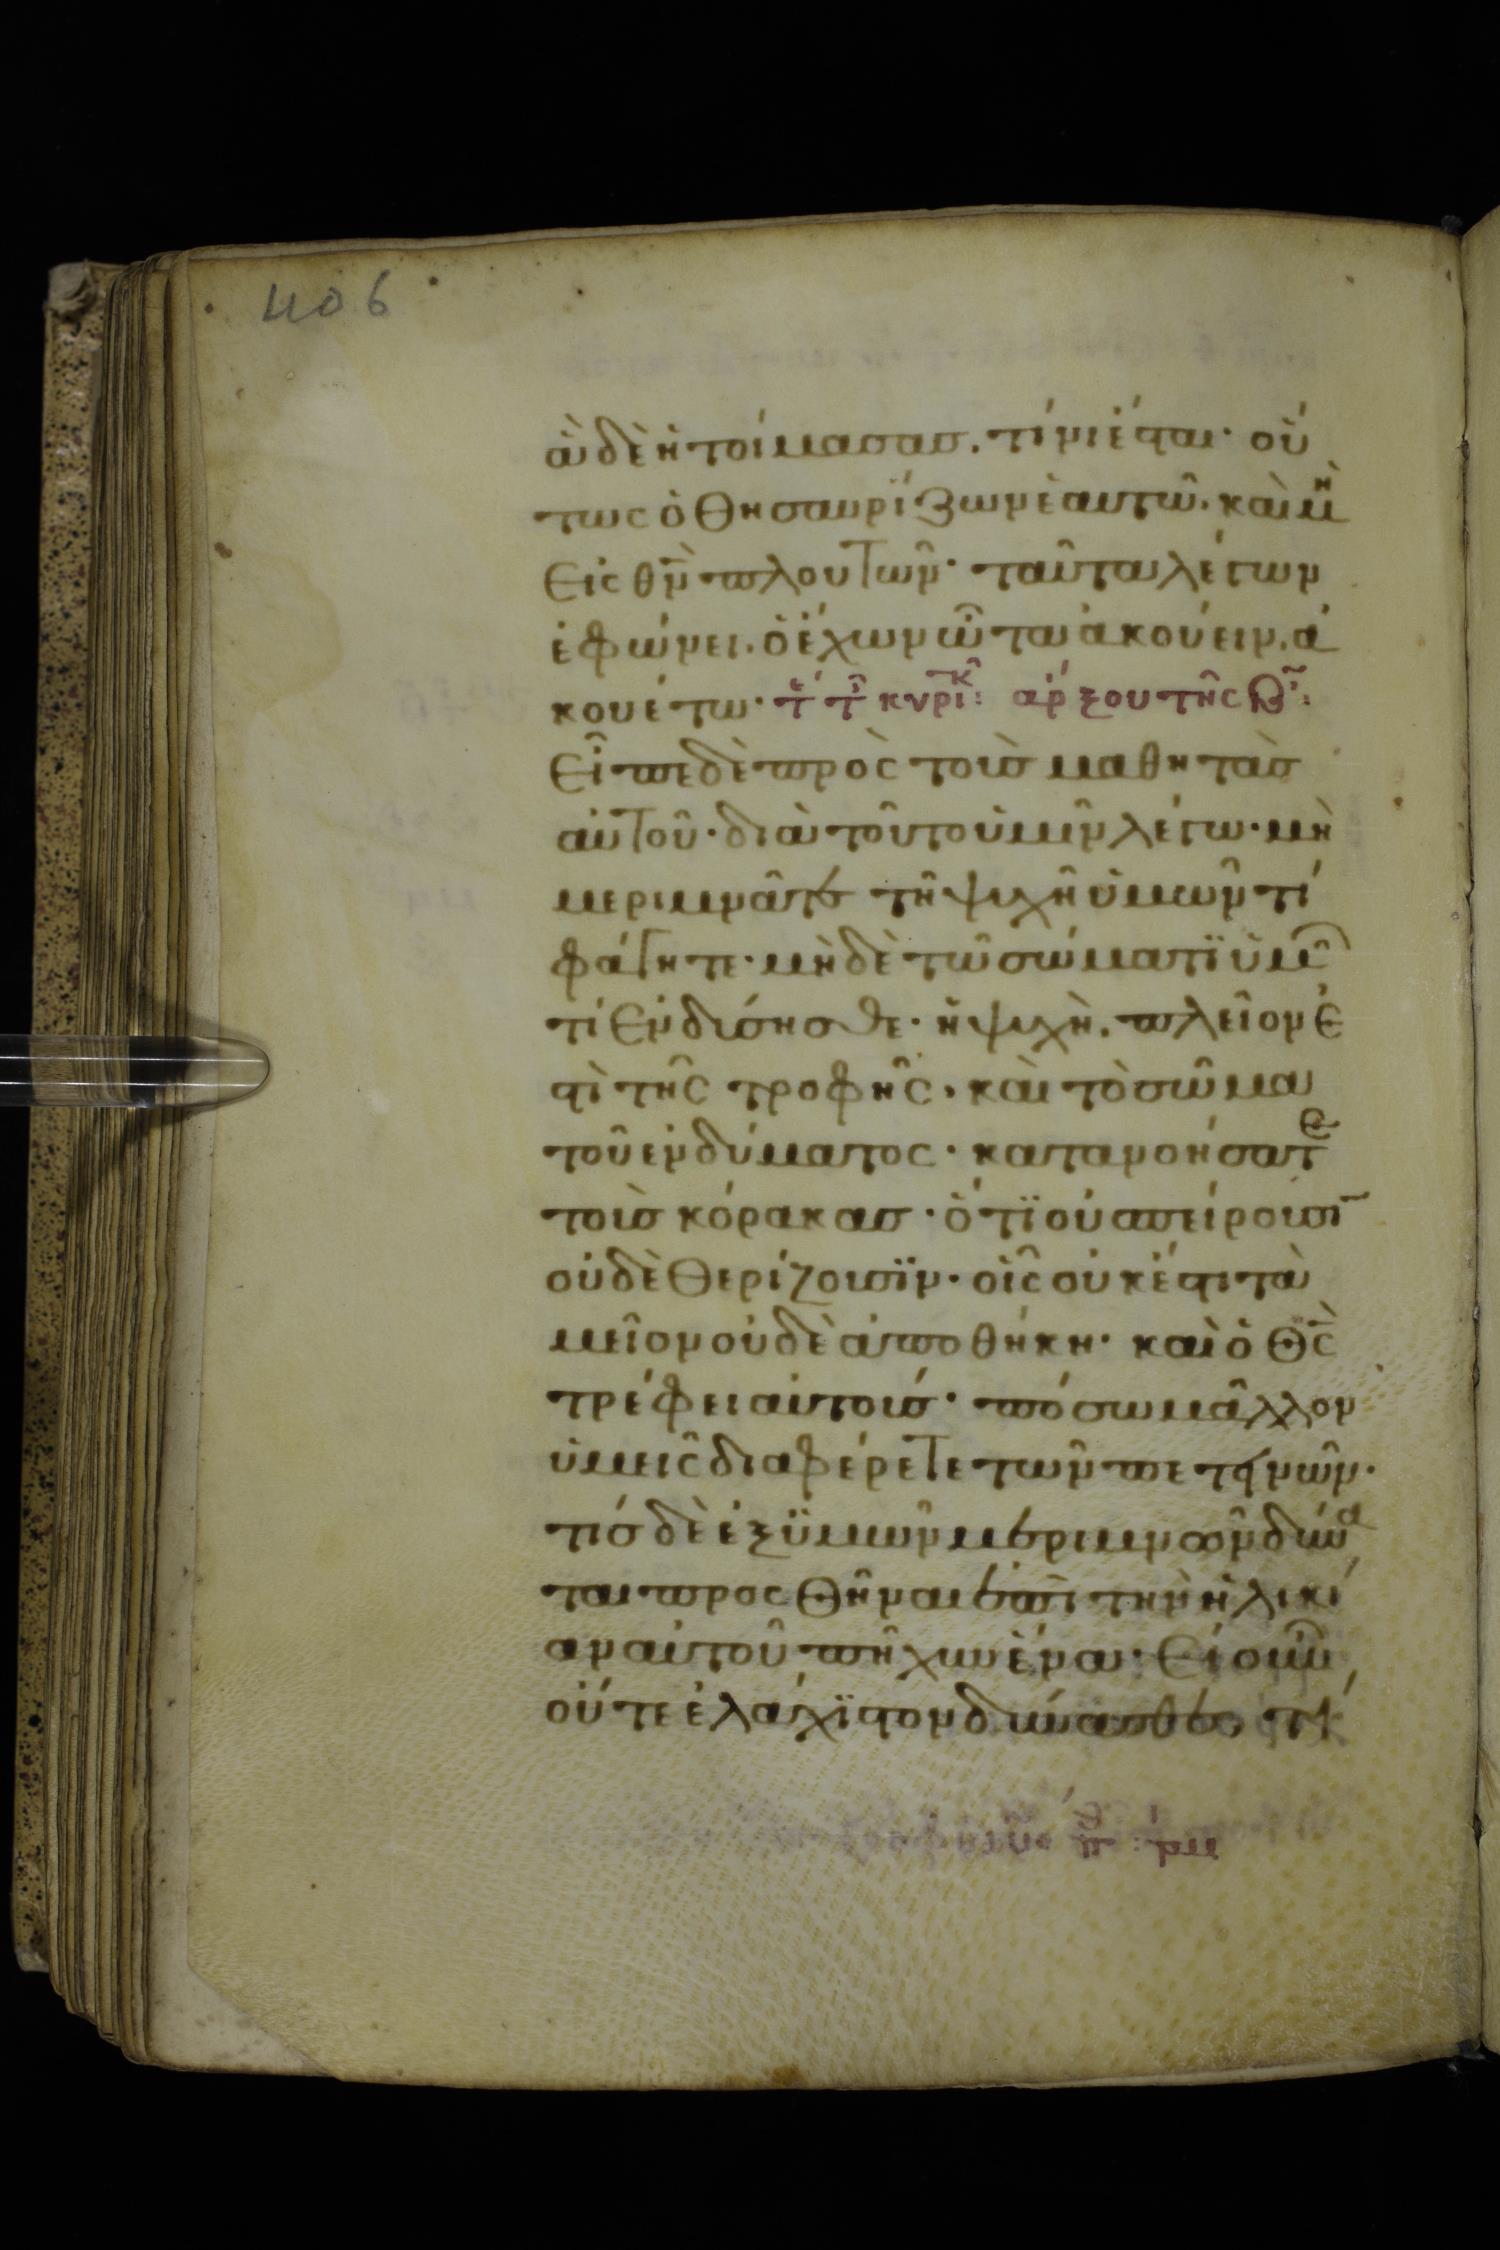 406
ἃ δὲ ἡτοίμασας. τίνι ἔσται· οὕ
τως ὁ θησαυρίζων ἑαυτῶ. καὶ μὴ
εἰς θν̅ πλουτῶν· ταῦτα λέγων
ἐφώνει. ὁ ἔχων ὦτα ἀκούειν, ἀ
κουέτω· τέ τ κυρι κ: ἄρξου τῆς
Εἶπε δὲ πρὸς τοὺς μαθητὰς
αὐτοῦ· διὰ τοῦτο ὑμῖν λέγω· μὴ
μεριμνᾶτε τῆ ψυχῆ ὑμῶν τί
φάγητε· μὴδὲ τῶ σώματϊ ὑμῶν
τί ἐνδύσησθε· ἡ ψυχὴ. πλεῖον ἐ
στὶ τῆς τροφῆς. καὶ τὸ σῶμα
τοῦ ἐνδύματος· κατανοήσατε
τοὺς κόρακας· ὅτϊ οὐ σπείρουσιν
οὐδὲ θερίζουσϊν· οἷς οὐκ ἔστι τα
μεῖον οὐδὲ ἀποθήκη· καὶ ὁ θς̅
τρέφει αὐτούς· πόσω μᾶλλον
ὑμεῖς διαφέρετε τῶν πετεινῶν·
τίς δὲ ἐξ ὑμῶν μεριμνῶν δύνα
ται προσθῆναι ἐπὶ τὴν ἡλικί
αν αὐτοῦ πῆχυν ἕνα· Εἰ οὖν
οὔτε ἐλάχϊστον δύνασθε, τί